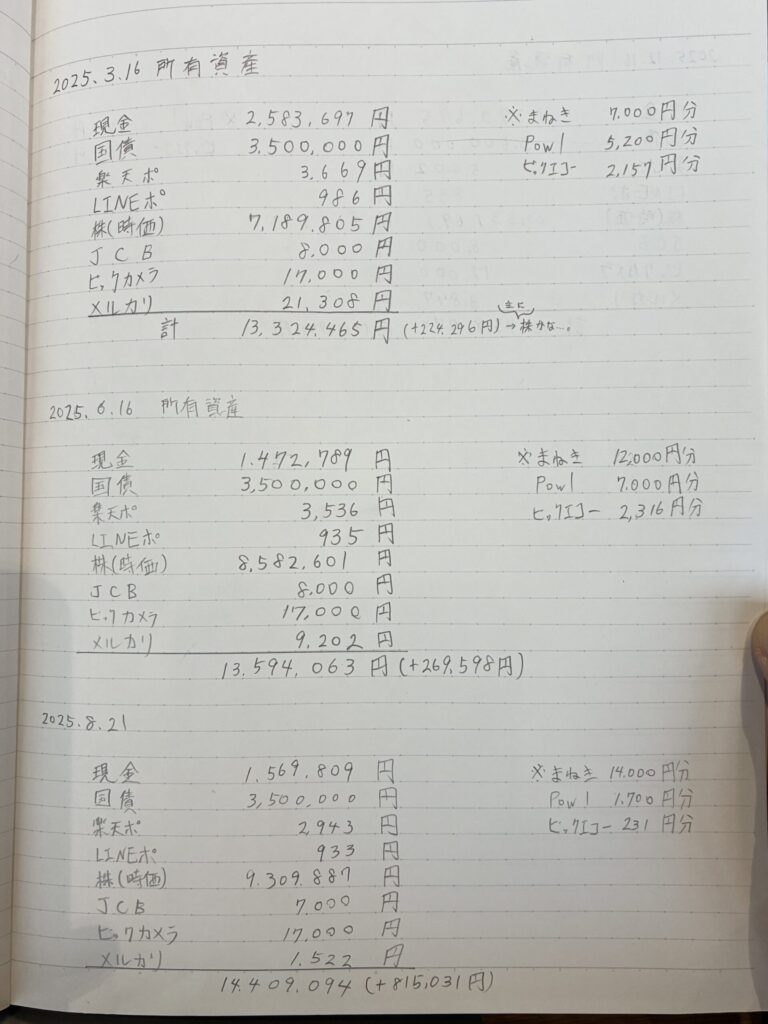 2025.3.16 所有資産
現金 2,583,697 円 ※まねき 7,000円分
国債 3,500,000 円 Pow1 5,200円分
楽天ポ 3,669 円 ビックエコー 2,157円分
LINEポ 986 円
株(時価) 7,189,805 円
JCB 8,000 円
ビックカメラ 17,000 円
メルカリ 21,308 円
主に
計 13,324,465 円 (+224,296円)→株かな…。
2025.6.16 所有資産
現金 1,472,789 円 ※まねき 12,000円分
国債 3,500,000 円 Pow1 7,000円分
楽天ポ 3,536 円 ビックエコー 2,316円分
LINEポ 935 円
株(時価) 8,582,601 円
JCB 8,000 円
ビックカメラ 17,000 円
メルカリ 9,202 円
13,594,063 円 (+269,598円)
2025.8.21
現金 1,569,809 円 ※まねき 14,000円分
国債 3,500,000 円 Pow1 1,700円分
楽天ポ 2943 円 ビックエコー 231円分
LINEポ 933 円
株(時価) 9,309,887 円
JCB 7,000 円
ビックカメラ 17,000 円
メルカリ 1,522 円
14,409,094 (+815,031円)